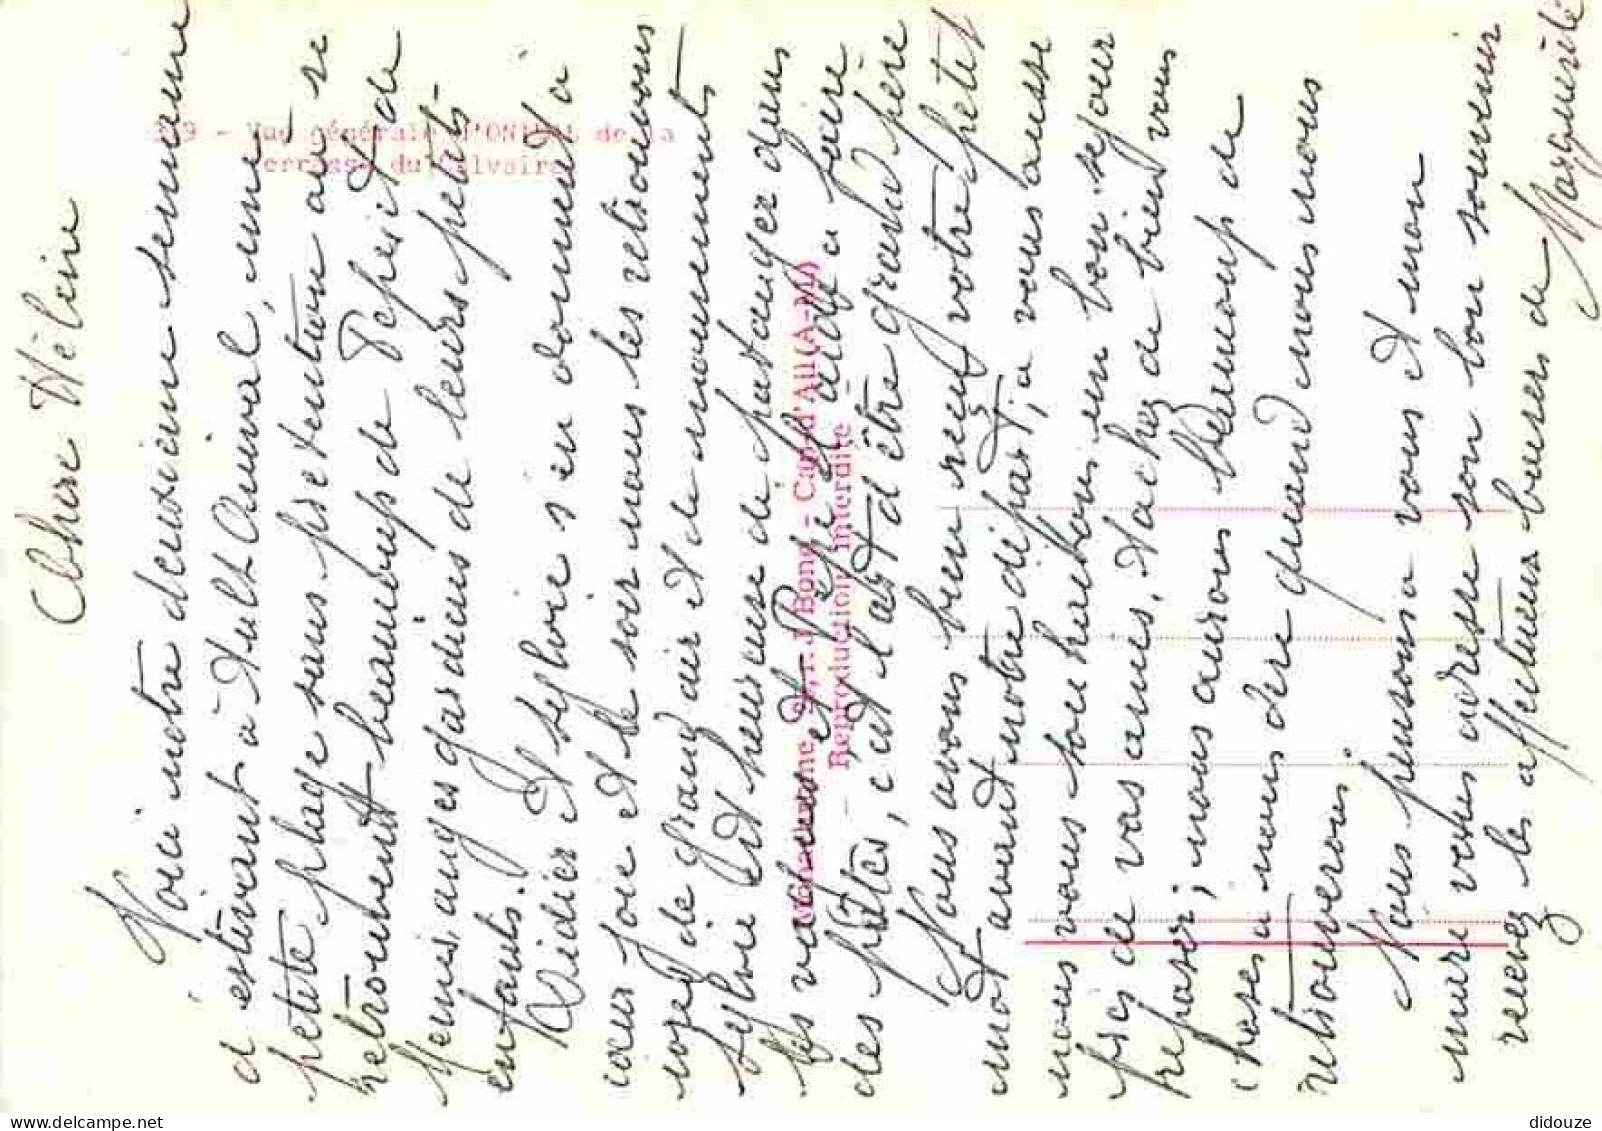 Chère Hélène
Voici notre deuxième semaine
d'estivant à Ault Onival, une
petite plage sans prétention où se
retrouvent beaucoup de Pépés et de
Mémés, anges gardiens de leurs petits-
enfants.
Didier et Sylvie s'en donnent à
cœur joie et le soir nous les retrouvons
de grand air et de mouvements
Sylvie est heureuse de partager dans
les vacances et Pépé l'aide a faire
des pâtés, c'est l'art d'être grand père
Nous avons bien reçu votre petit
mot avant notre départ, a vous aussi
nous vous souhaitons un bon séjour
près de vos amis, tachez de bien vous
reposer, nous aurons beaucoup de
choses a nous dire quand nous nous
retrouverons.
Nous pensons a vous et mon
vous adresse son bon souvenir
recevez les affectueux baisers de
Marguerite
219 - Vue générale d'ONIVAL de la
Terrasse du Calvaire
Monacarme, 9, r. J. Bono - Cap-d'Ail (A-M)
- Reproduction interdite -
didouze